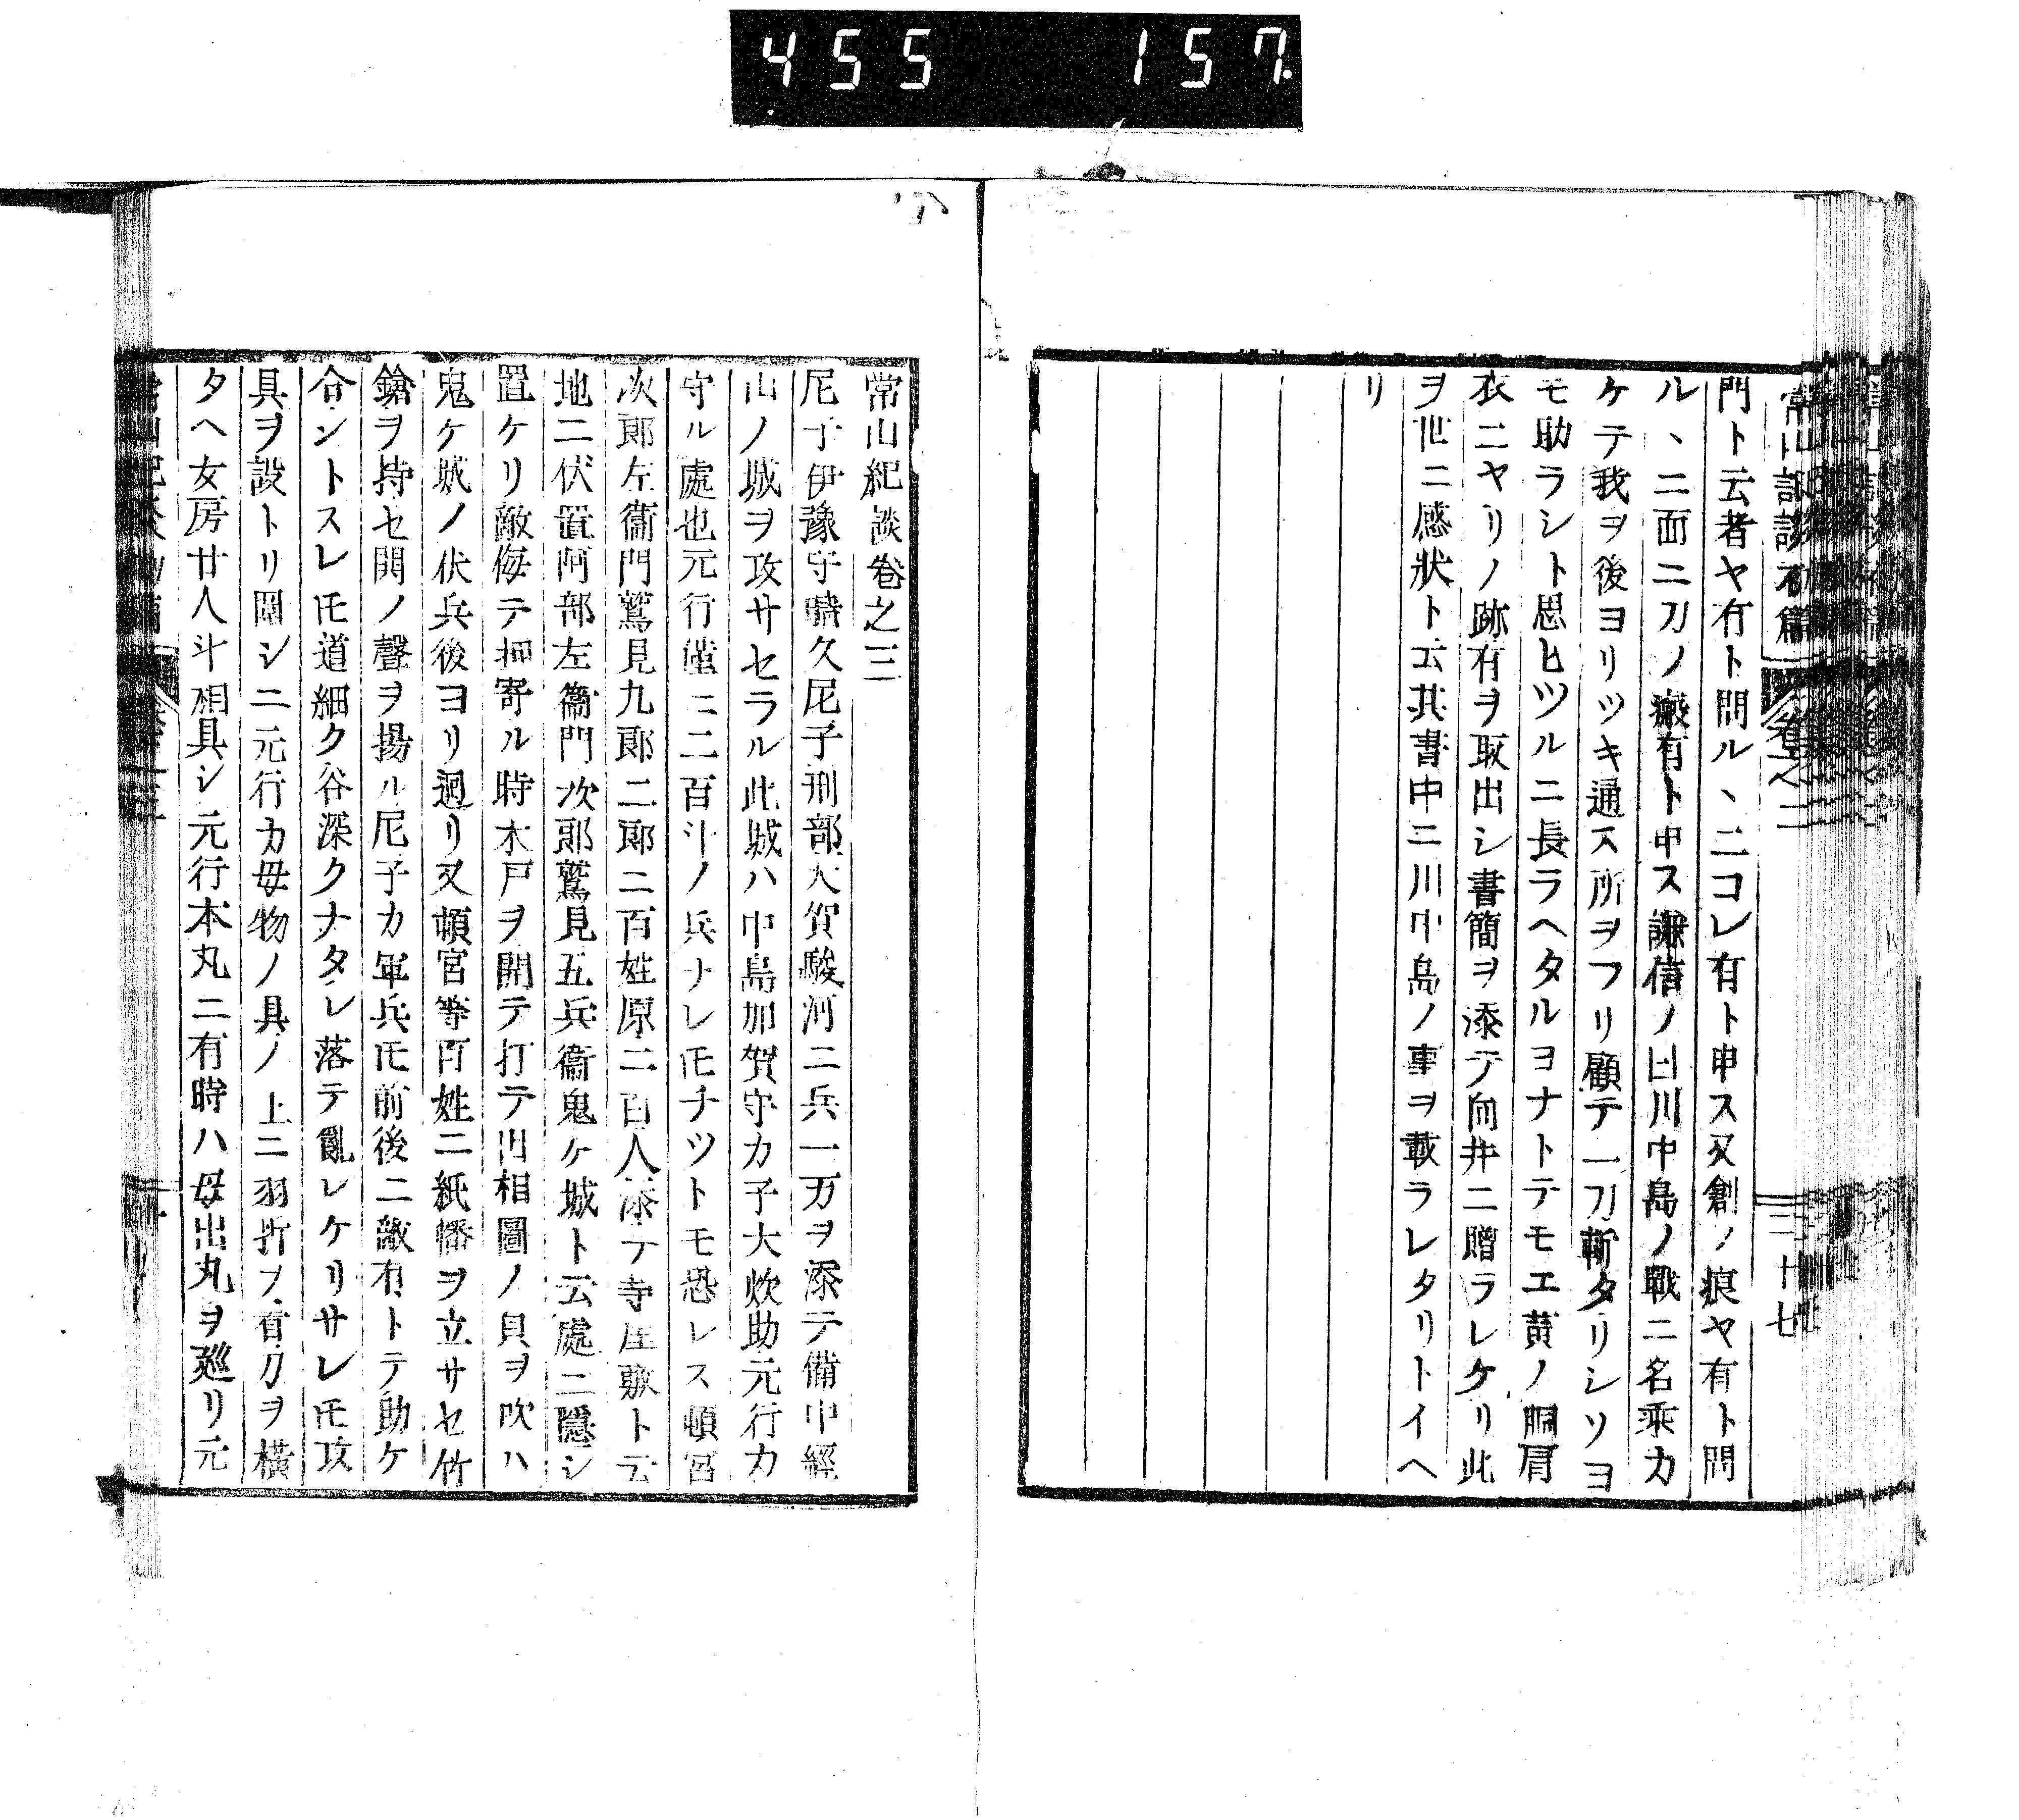 455 157
門ト云者ヤ有ト問ル、ニコレ有ト申ス又創ノ痕ヤ有ト問
ル、ニ面ニ刀ノ瘢有ト申ス謙信ノ曰川中島ノ戰ニ名乘カ
ケテ我ヲ後ヨリツキ通ス所ヲフリ顧テ一刀斬タリシソヨ
モ助ラシト思ヒツルニ長ラヘタルヨナトテモエ黄ノ胴肩
衣ニヤリノ跡有ヲ取出シ書簡ヲ添テ向井ニ贈ラレケリ此
ヲ世ニ感狀ト云其書中ニ川中島ノ事ヲ載ラレタリトイヘ
リ
常山紀談卷之三
尼子伊豫守晴久尼子刑部大賀駿河ニ兵一万ヲ添テ備中經
山ノ城ヲ攻サセラル此城ハ中島加賀守カ子大炊助元行カ
守ル處也元行僅ニ二百斗ノ兵ナレ𪜈チツトモ恐レス頓宮
次郎左衞門鷲見九郎二郎ニ百姓原二百人添テ寺屋敷ト云
地ニ伏置阿部左衞門次郎鷲見五兵衞鬼ケ城ト云處ニ隱シ
置ケリ敵侮テ押寄ル時木戸ヲ開テ打テ出相圖ノ貝ヲ吹ハ
鬼ケ城ノ伏兵後ヨリ廻リ又頓宮等百姓ニ紙幡ヲ立サセ竹
鎗ヲ持セ鬨ノ聲ヲ揚ル尼子カ軍兵𪜈前後ニ敵有トテ助ケ
合ントスレ𪜈道細ク谷深クナタレ落テ亂レケリサレ𪜈攻
具ヲ設トリ圍シニ元行カ母物ノ具ノ上ニ羽折ヲ着刀ヲ橫
タヘ女房廿人斗相具シ元行本丸ニ有時ハ母出丸ヲ廵リ元